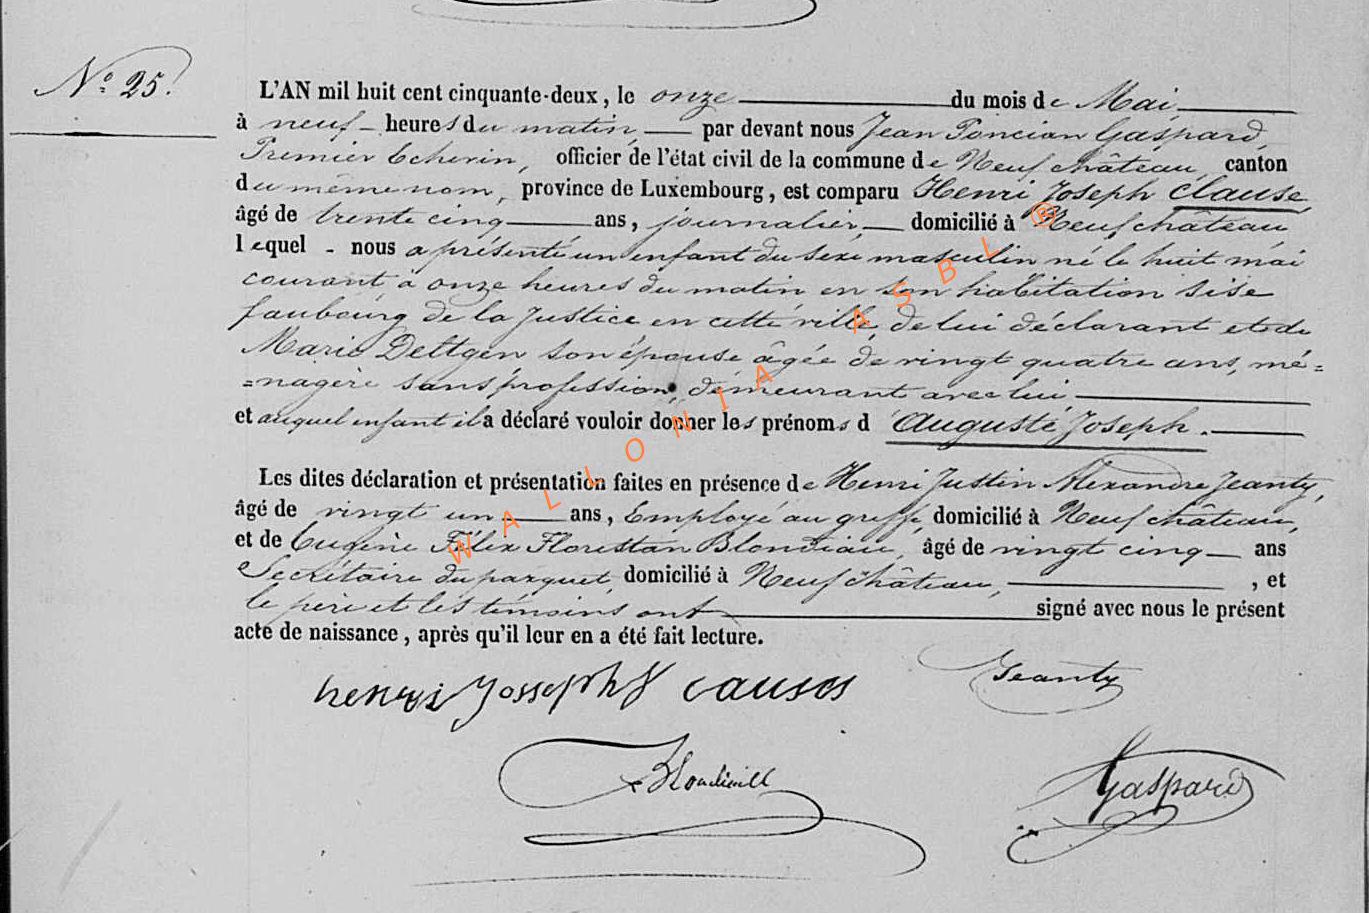 N° 25.
L'AN mil huit cent cinquante-deux, le onze du mois de Mai
à neuf heures du matin, par devant nous Jean Poncian Gaspard,
Premier Echevin, officier de l'état civil de la commune de Neufchâteau, canton
du même nom, province de Luxembourg, est comparu Henri Joseph Clause,
âgé de trente cinq ans, journalier, domicilié à Neufchâteau
lequel nous a présenté un enfant du sexe masculin né le huit mai
courant à onze heures du matin en son habitation sise
faubourg de la Justice en cette ville, de lui déclarant et de
Marie Dettgen son épouse âgée de vingt quatre ans, mé=
=nagère sans profession, demeurant avec lui
et auquel enfant il a déclaré vouloir donner les prénoms d Auguste Joseph.
Les dites déclaration et présentation faites en présence de Henri Justin Alexandre Jeanty,
âgé de vingt un ans, Employé au greffe, domicilié à Neufchâteau,
et de Eugène Félix Florestan Blondiau, âgé de vingt cinq ans
Secrétaire du parquet, domicilié à Neufchâteau, , et
le père et les témoins ont signé avec nous le présent
acte de naissance, après qu'il leur en a été fait lecture.
Jeanty
Gaspard
WALLONIA ASBL ®